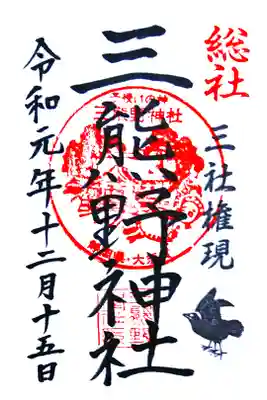 総社
三社権現
三熊野神社
令和元年十二月十五日